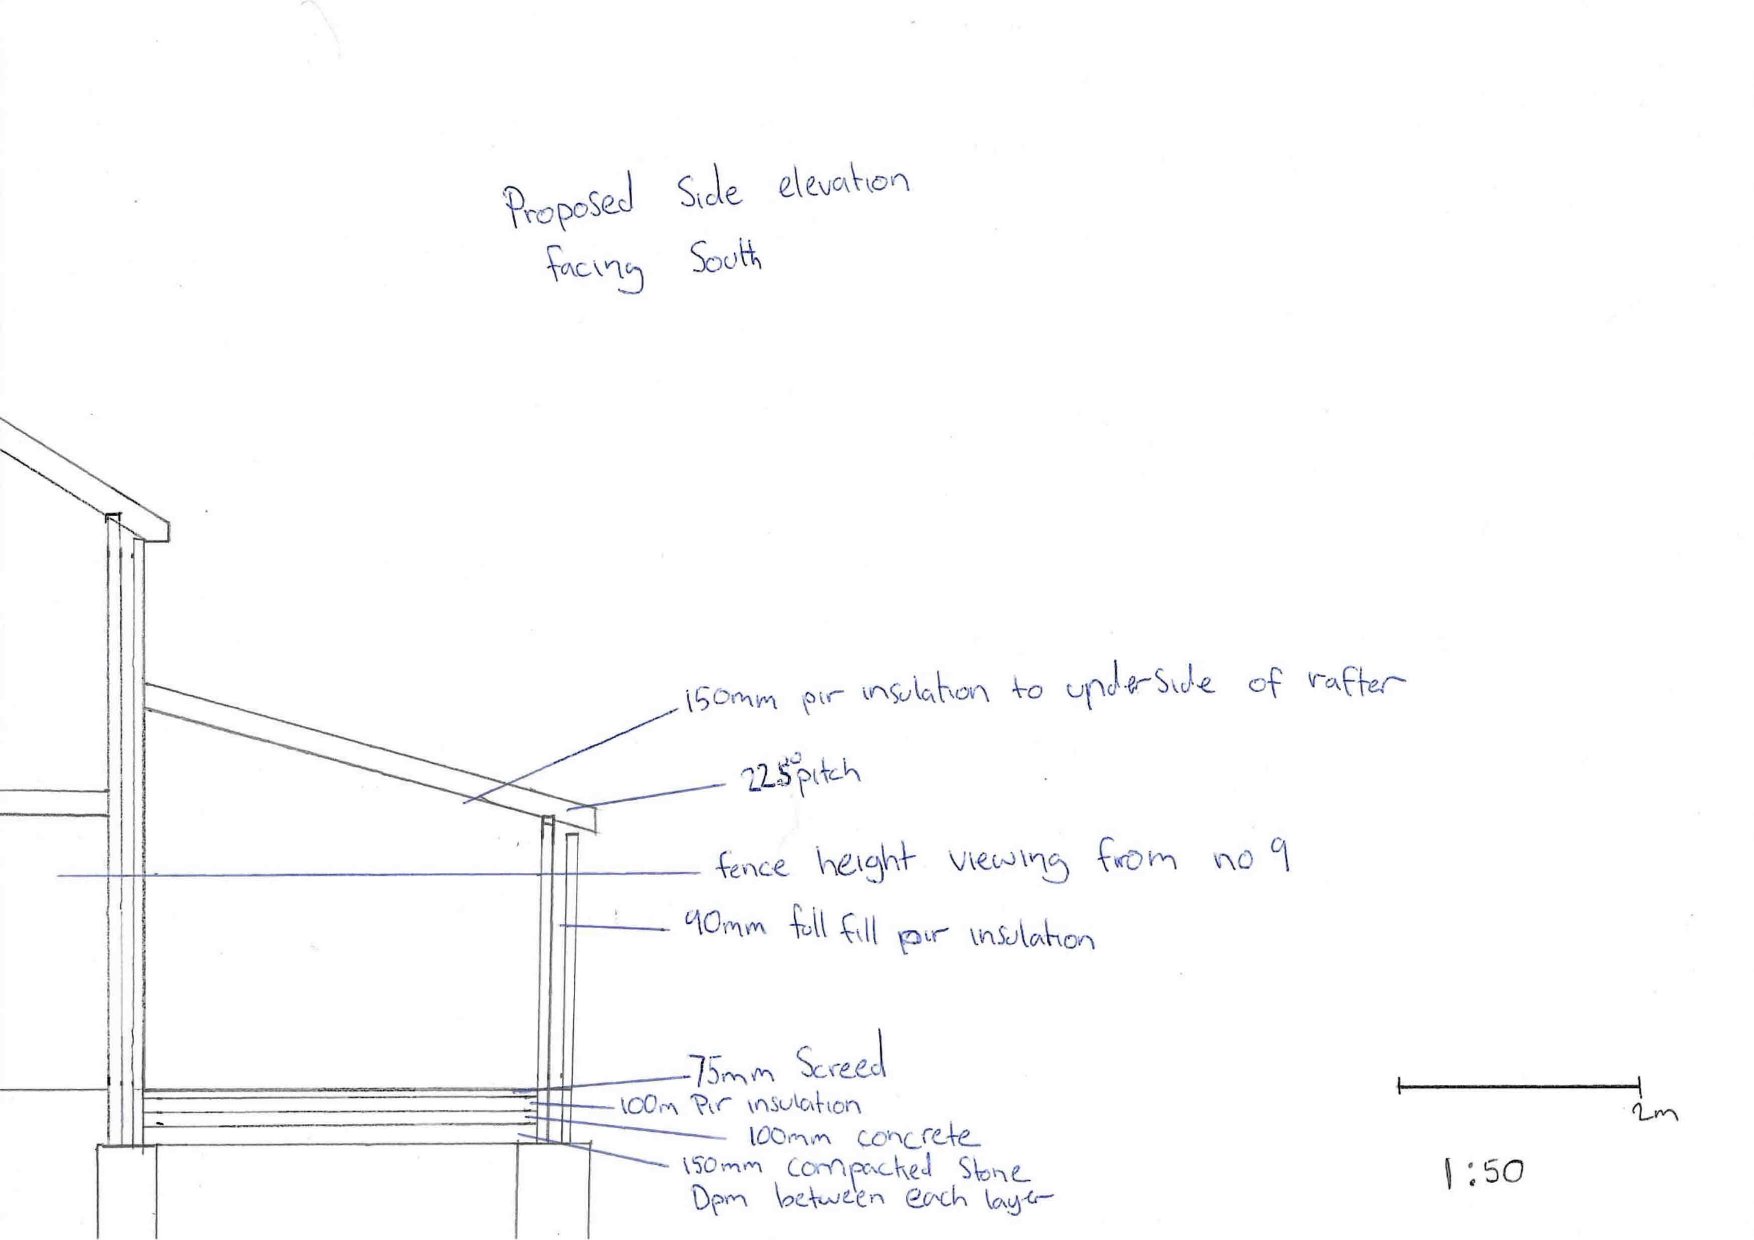 Proposed Side elevation
facing South
150mm pir insulation to underside of rafter
22.5° pitch
fence height viewing from no 9
90mm full fill pir insulation
75mm Screed
100m Pir insulation
100mm concrete
150mm compacted Stone
Dpm between each layer
2m
1:50